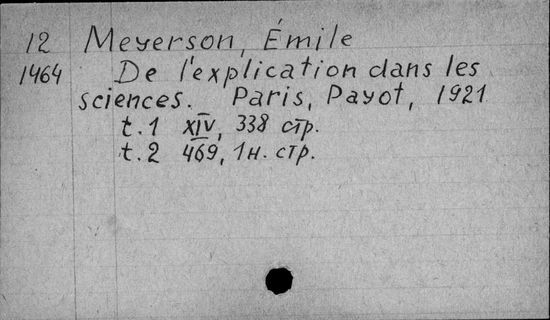 12 Meyerson, Émile
1464 De l'explication dans les
sciences. Paris, Payot, 1921
t. 1 XIV, 338 стр.
t. 2 469, 1 н. стр.